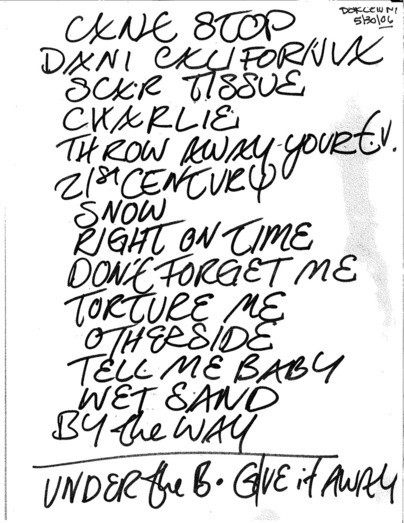 MI
5/30/06
CANT STOP
DANI CALIFORNIA
SCAR TISSUE
CHARLIE
THROW AWAY YOUR T.V.
21st CENTURY
SNOW
RIGHT ON TIME
DON'T FORGET ME
TORTURE ME
OTHERSIDE
TELL ME BABY
WET SAND
BY the WAY
UNDER the B • GIVE it AWAY